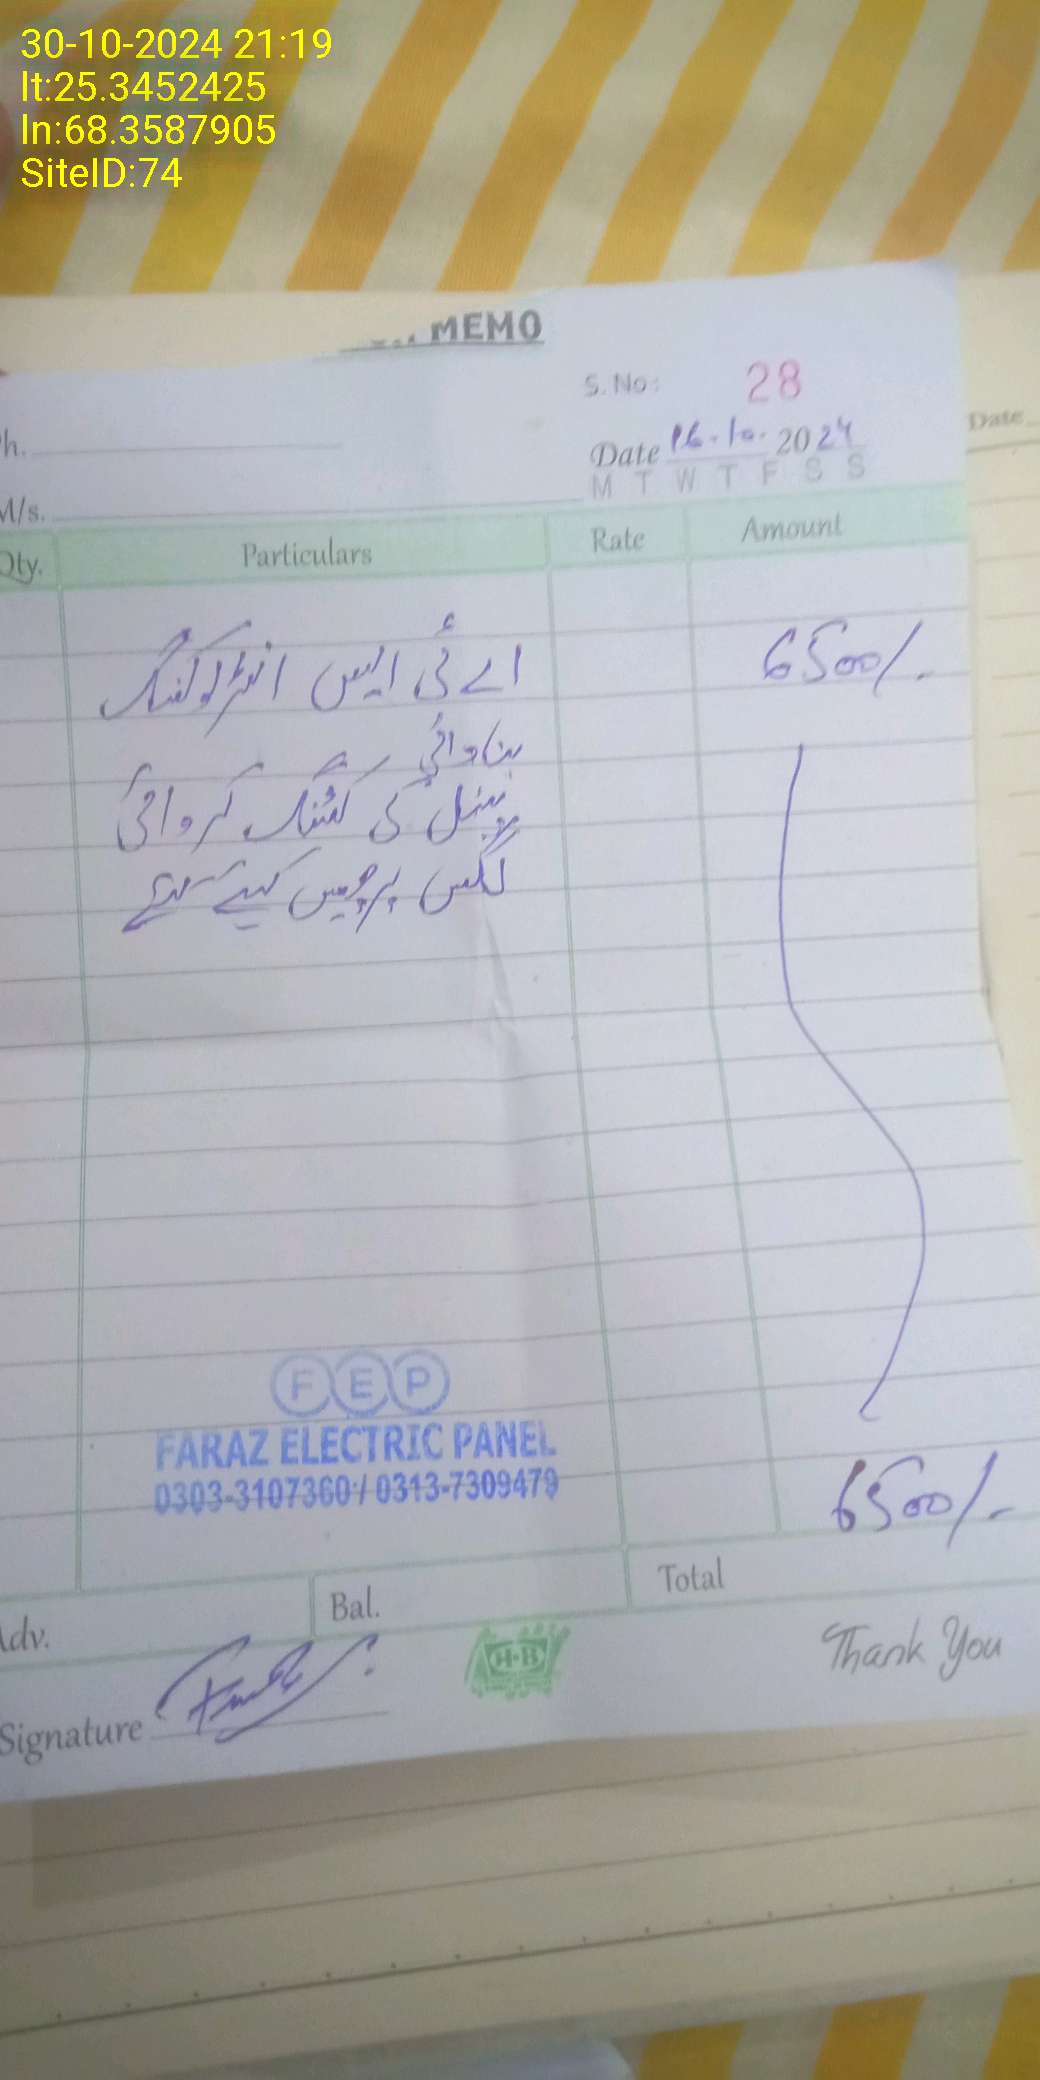 30-10-2024 21:19
lt:25.3452425
ln:68.3587905
SiteID:74
MEMO
S. No: 28
h.
Date 16.10. 2024
Date
M T W T F S S
M/s.
Qty. Particulars Rate Amount
اے ٹی ایس انٹرلوکنگ 6500/-
بنوائی
پینل کی کٹنگ کروائی
لگس پرچیس کیے
F E P
FARAZ ELECTRIC PANEL
0303-3107360 / 0313-7309479
6500/-
Total
Adv. Bal.
H·B
Thank You
Signature